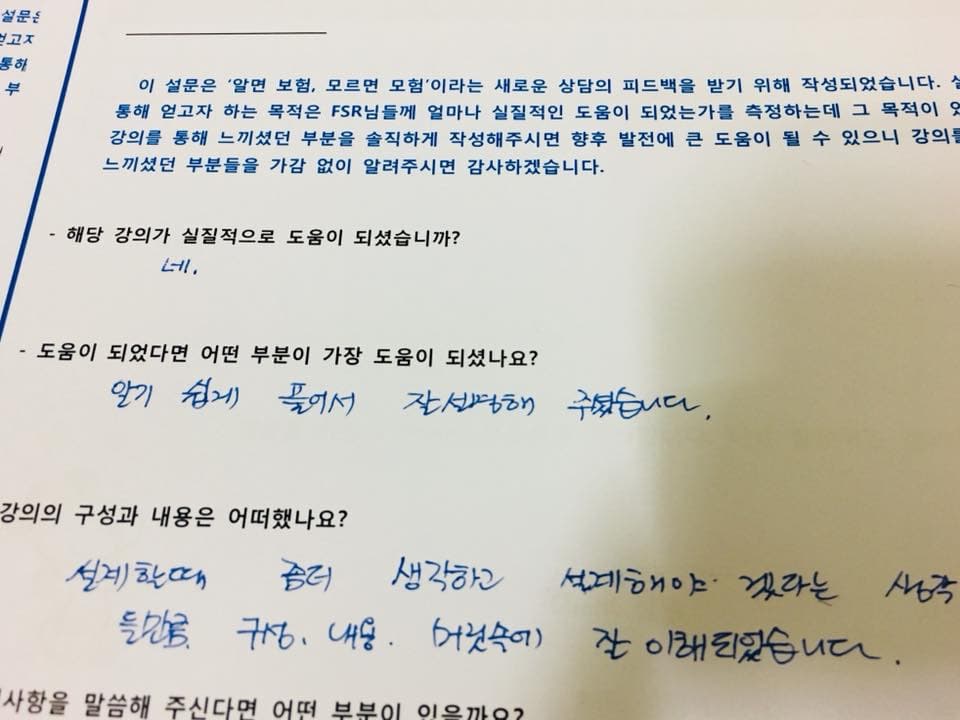 설문은
얻고자
통해
부
이 설문은 '알면 보험, 모르면 모험'이라는 새로운 상담의 피드백을 받기 위해 작성되었습니다.
통해 얻고자 하는 목적은 FSR님들께 얼마나 실질적인 도움이 되었는가를 측정하는데 그 목적이
강의를 통해 느끼셨던 부분을 솔직하게 작성해주시면 향후 발전에 큰 도움이 될 수 있으니 강의를
느끼셨던 부분들을 가감 없이 알려주시면 감사하겠습니다.
- 해당 강의가 실질적으로 도움이 되셨습니까?
네.
- 도움이 되었다면 어떤 부분이 가장 도움이 되셨나요?
알기 쉽게 풀어서 잘설명해 주셨습니다.
강의의 구성과 내용은 어떠했나요?
설계할때 좀더 생각하고 설계해야 겠다는 생각
들만큼 구성, 내용. 잘 이해되었습니다.
사항을 말씀해 주신다면 어떤 부분이 있을까요?